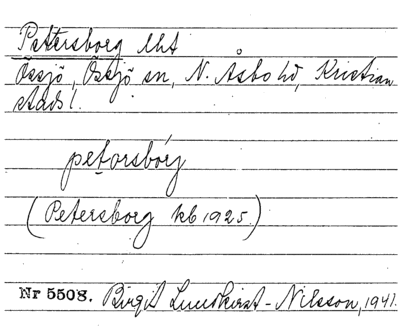 Petersborg lht
Össjö, Össjö sn, N. Åsbo hd, Kristian
stads l.
petorsbórg
(Petersborg kb 1925.)
Nr 5508. Birgit Lundkvist-Nilsson, 1941.